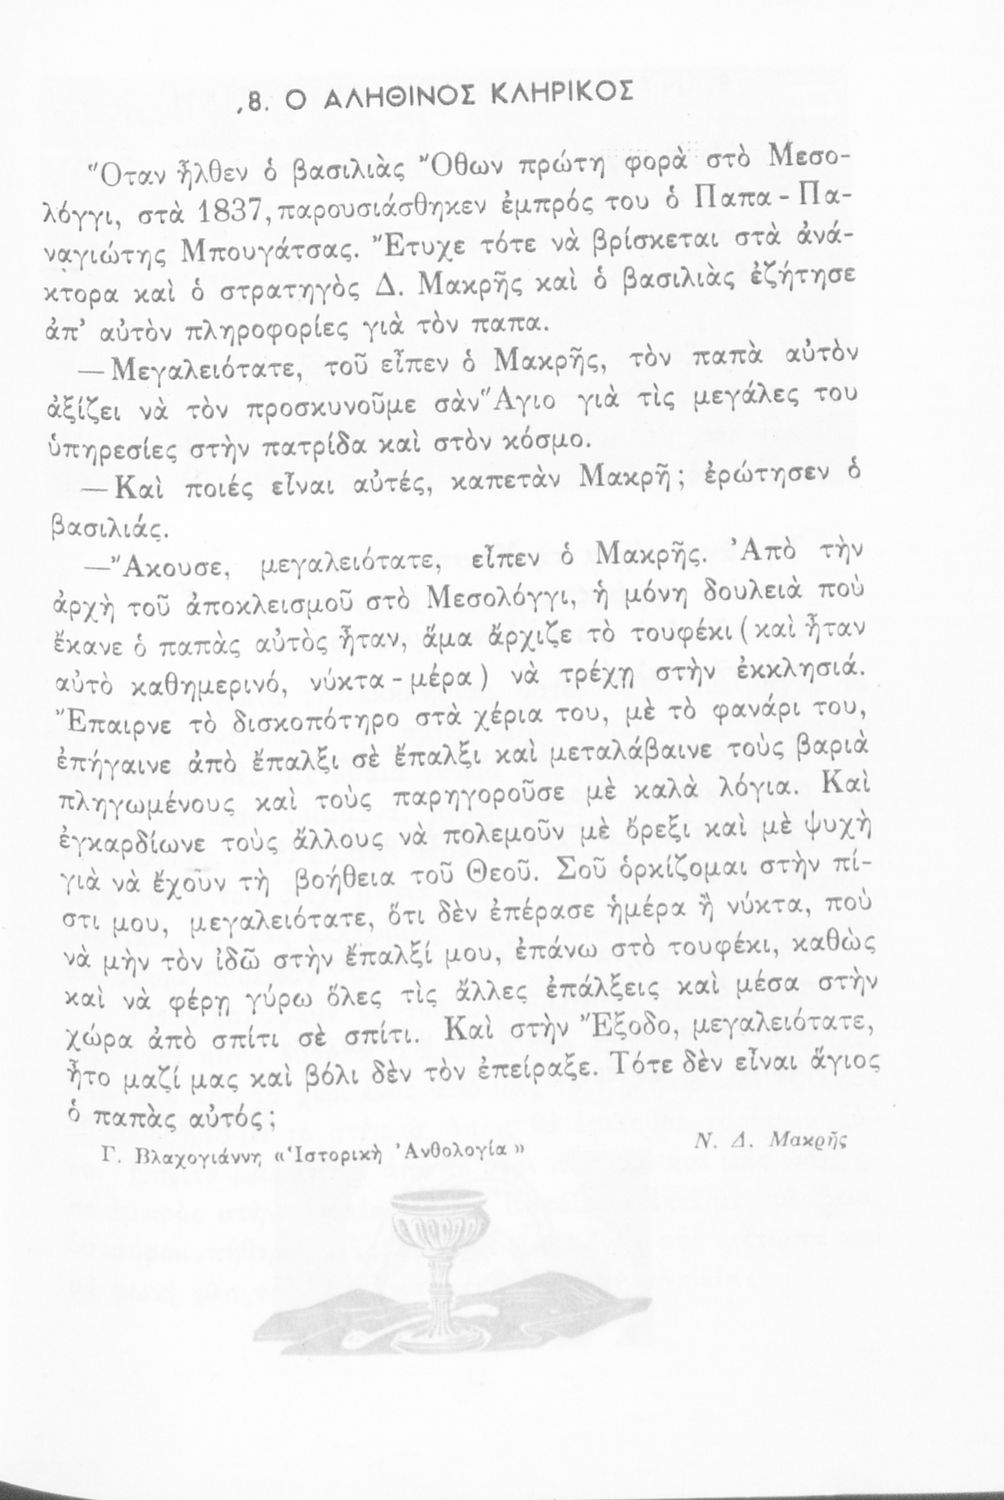 8. Ο ΑΛΗΘΙΝΟΣ ΚΛΗΡΙΚΟΣ
Ὅταν ἦλθεν ὁ βασιλιὰς Ὄθων πρώτη φορὰ στὸ Μεσο-
λόγγι, στὰ 1837, παρουσιάσθηκεν ἐμπρός του ὁ Παπα - Πα-
ναγιώτης Μπουγάτσας. Ἔτυχε τότε νὰ βρίσκεται στὰ ἀνά-
κτορα καὶ ὁ στρατηγὸς Δ. Μακρῆς καὶ ὁ βασιλιὰς ἐζήτησε
ἀπ' αὐτὸν πληροφορίες γιὰ τὸν παπα.
— Μεγαλειότατε, τοῦ εἶπεν ὁ Μακρῆς, τὸν παπὰ αὐτὸν
ἀξίζει νὰ τὸν προσκυνοῦμε σὰν Ἅγιο γιὰ τὶς μεγάλες του
ὑπηρεσίες στὴν πατρίδα καὶ στὸν κόσμο.
— Καὶ ποιές εἶναι αὐτές, καπετὰν Μακρῆ; ἐρώτησεν ὁ
βασιλιάς.
— Ἄκουσε, μεγαλειότατε, εἶπεν ὁ Μακρῆς. Ἀπὸ τὴν
ἀρχὴ τοῦ ἀποκλεισμοῦ στὸ Μεσολόγγι, ἡ μόνη δουλειὰ ποὺ
ἔκανε ὁ παπὰς αὐτὸς ἦταν, ἅμα ἄρχιζε τὸ τουφέκι (καὶ ἦταν
αὐτὸ καθημερινό, νύκτα - μέρα) νὰ τρέχῃ στὴν ἐκκλησιά.
Ἔπαιρνε τὸ δισκοπότηρο στὰ χέρια του, μὲ τὸ φανάρι του,
ἐπήγαινε ἀπὸ ἔπαλξι σὲ ἔπαλξι καὶ μεταλάβαινε τοὺς βαριὰ
πληγωμένους καὶ τοὺς παρηγοροῦσε μὲ καλὰ λόγια. Καὶ
ἐγκαρδίωνε τοὺς ἄλλους νὰ πολεμοῦν μὲ ὄρεξι καὶ μὲ ψυχὴ
γιὰ νὰ ἔχουν τὴ βοήθεια τοῦ Θεοῦ. Σοῦ ὁρκίζομαι στὴν πί-
στι μου, μεγαλειότατε, ὅτι δὲν ἐπέρασε ἡμέρα ἢ νύκτα, ποὺ
νὰ μὴν τὸν ἰδῶ στὴν ἔπαλξί μου, ἐπάνω στὸ τουφέκι, καθὼς
καὶ νὰ φέρῃ γύρω ὅλες τὶς ἄλλες ἐπάλξεις καὶ μέσα στὴν
χώρα ἀπὸ σπίτι σὲ σπίτι. Καὶ στὴν Ἔξοδο, μεγαλειότατε,
ἦτο μαζί μας καὶ βόλι δὲν τὸν ἐπείραξε. Τότε δὲν εἶναι ἅγιος
ὁ παπὰς αὐτός;
Γ. Βλαχογιάννη «Ἱστορικὴ Ἀνθολογία»
Ν. Δ. Μακρῆς